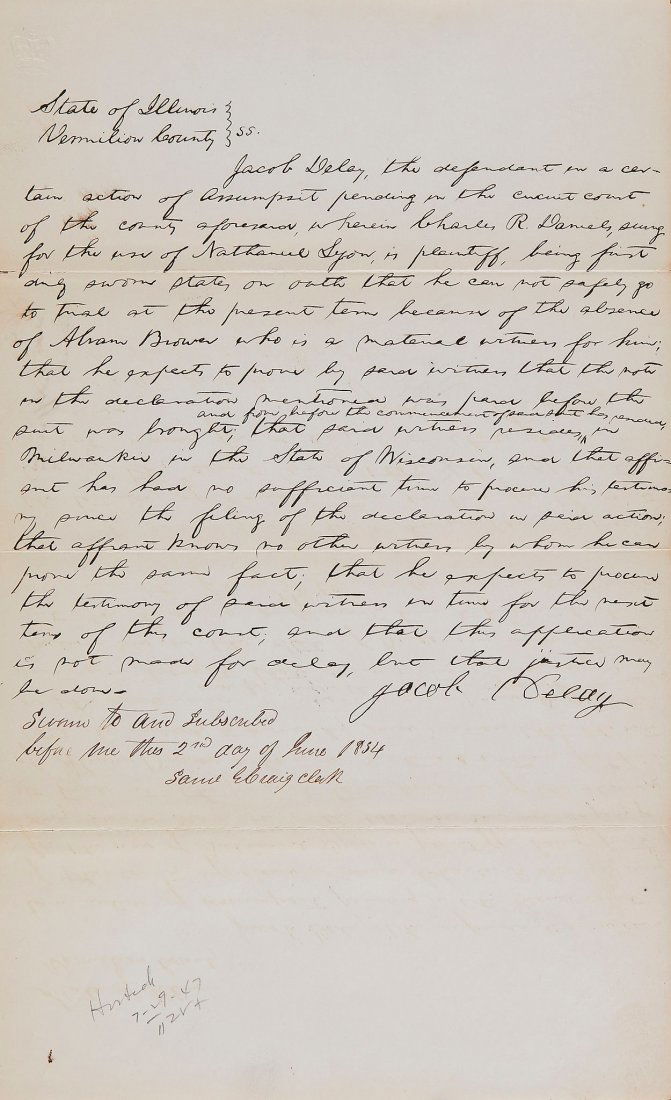 State of Illinois }
Vermilion County } SS.
Jacob Delay, the defendant in a cer-
tain action of assumpsit pending in the circuit court
of the county aforesaid, wherein Charles R. Daniels, suing
for the use of Nathaniel Lyon, is plaintiff, being first
duly sworn states on oath that he can not safely go
to trial at the present term because of the absence
of Abram Brower who is a material witness for him;
that he expects to prove by said witness that the note
in the declaration mentioned was paid before the
and from before the commencement of said suit has resided,
suit was brought; that said witness resides, ^ in
Milwaukie in the State of Wisconsin, and that affi-
ant has had no sufficient time to procure his testimo-
ny since the filing of the declaration in said action;
that affiant knows no other witness by whom he can
prove the same fact; that he expects to procure
the testimony of said witness in time for the next
term of this court; and that this application
is not made for delay, but that justice may
be done
Jacob Delay
Sworn to and subscribed
before me this 2nd day of June 1854
Saml G Craig clerk
7-29-47